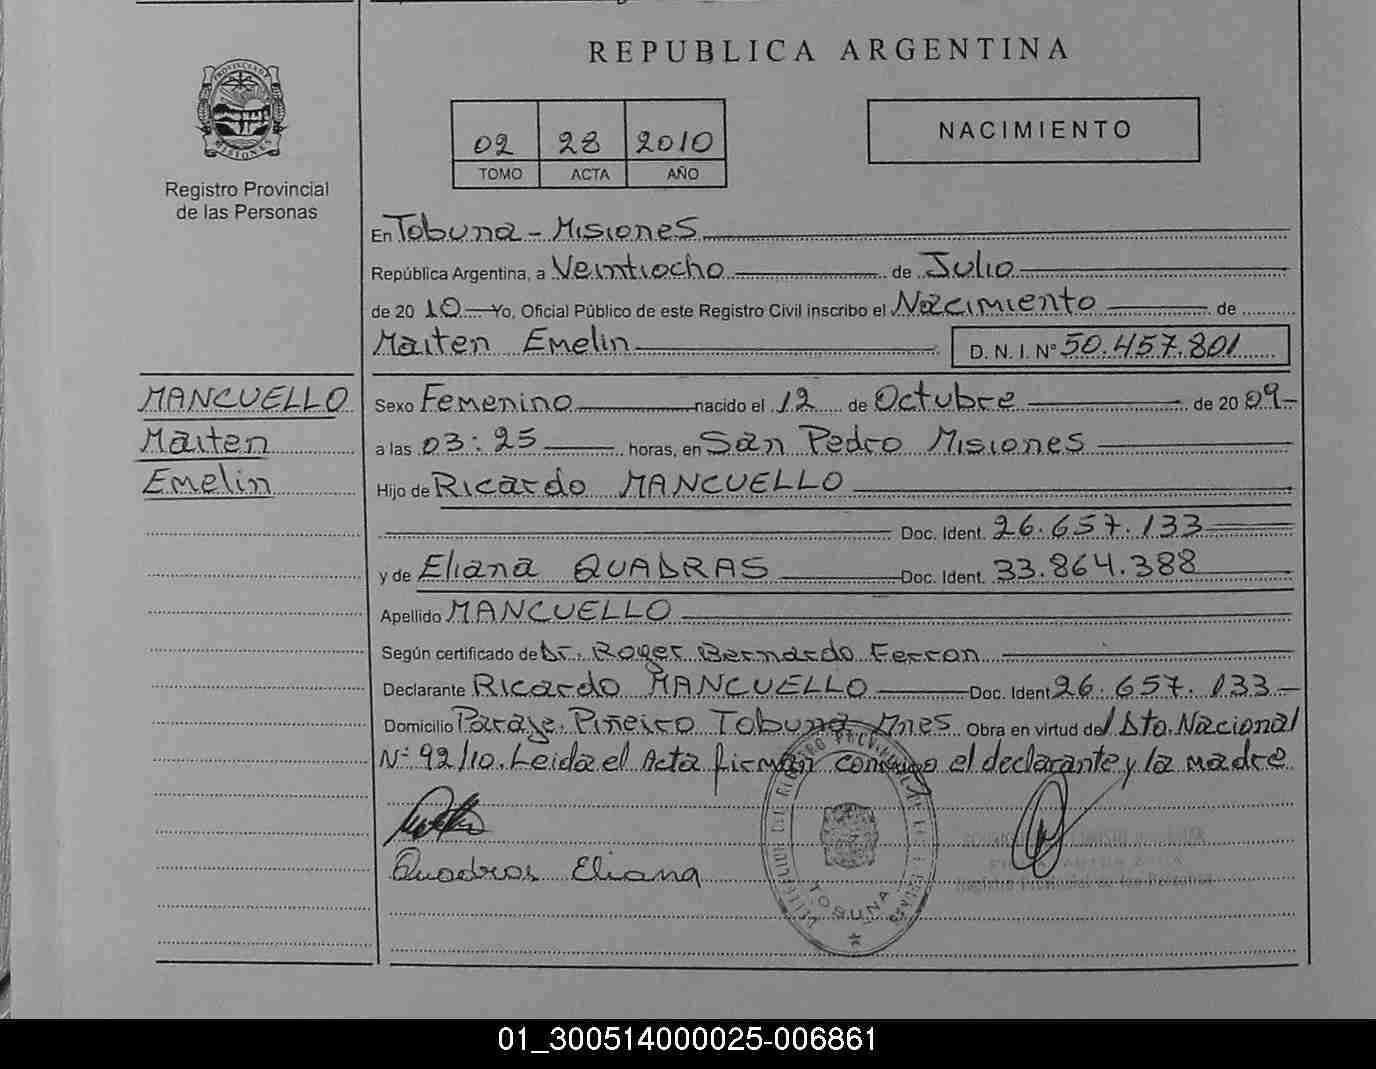 REPUBLICA ARGENTINA
PROVINCIA DE
MISIONES
Registro Provincial
de las Personas
02 28 2010
TOMO ACTA AÑO
NACIMIENTO
En Tobuna - Misiones
República Argentina, a Veintiocho de Julio
de 20 10 Yo, Oficial Público de este Registro Civil inscribo el Nacimiento de
Maiten Emelin D. N. I. Nº 50.457.801
MANCUELLO
Maiten
Emelin
Sexo Femenino nacido el 12 de Octubre de 20 09-
a las 03:25 horas, en San Pedro Misiones
Hijo de Ricardo MANCUELLO
Doc. Ident. 26.657.133
y de Eliana QUADRAS Doc. Ident. 33.864.388
Apellido MANCUELLO
Según certificado de Dr. Roger Bernardo Ferron
Declarante Ricardo MANCUELLO Doc. Ident 26.657.133-
Domicilio Paraje Piñeiro Tobuna Mnes Obra en virtud del Dto. Nacional
Nº 92/10. Leida el Acta firman conmigo el declarante y la madre
Quadros Eliana
TOBUNA
01_300514000025-006861